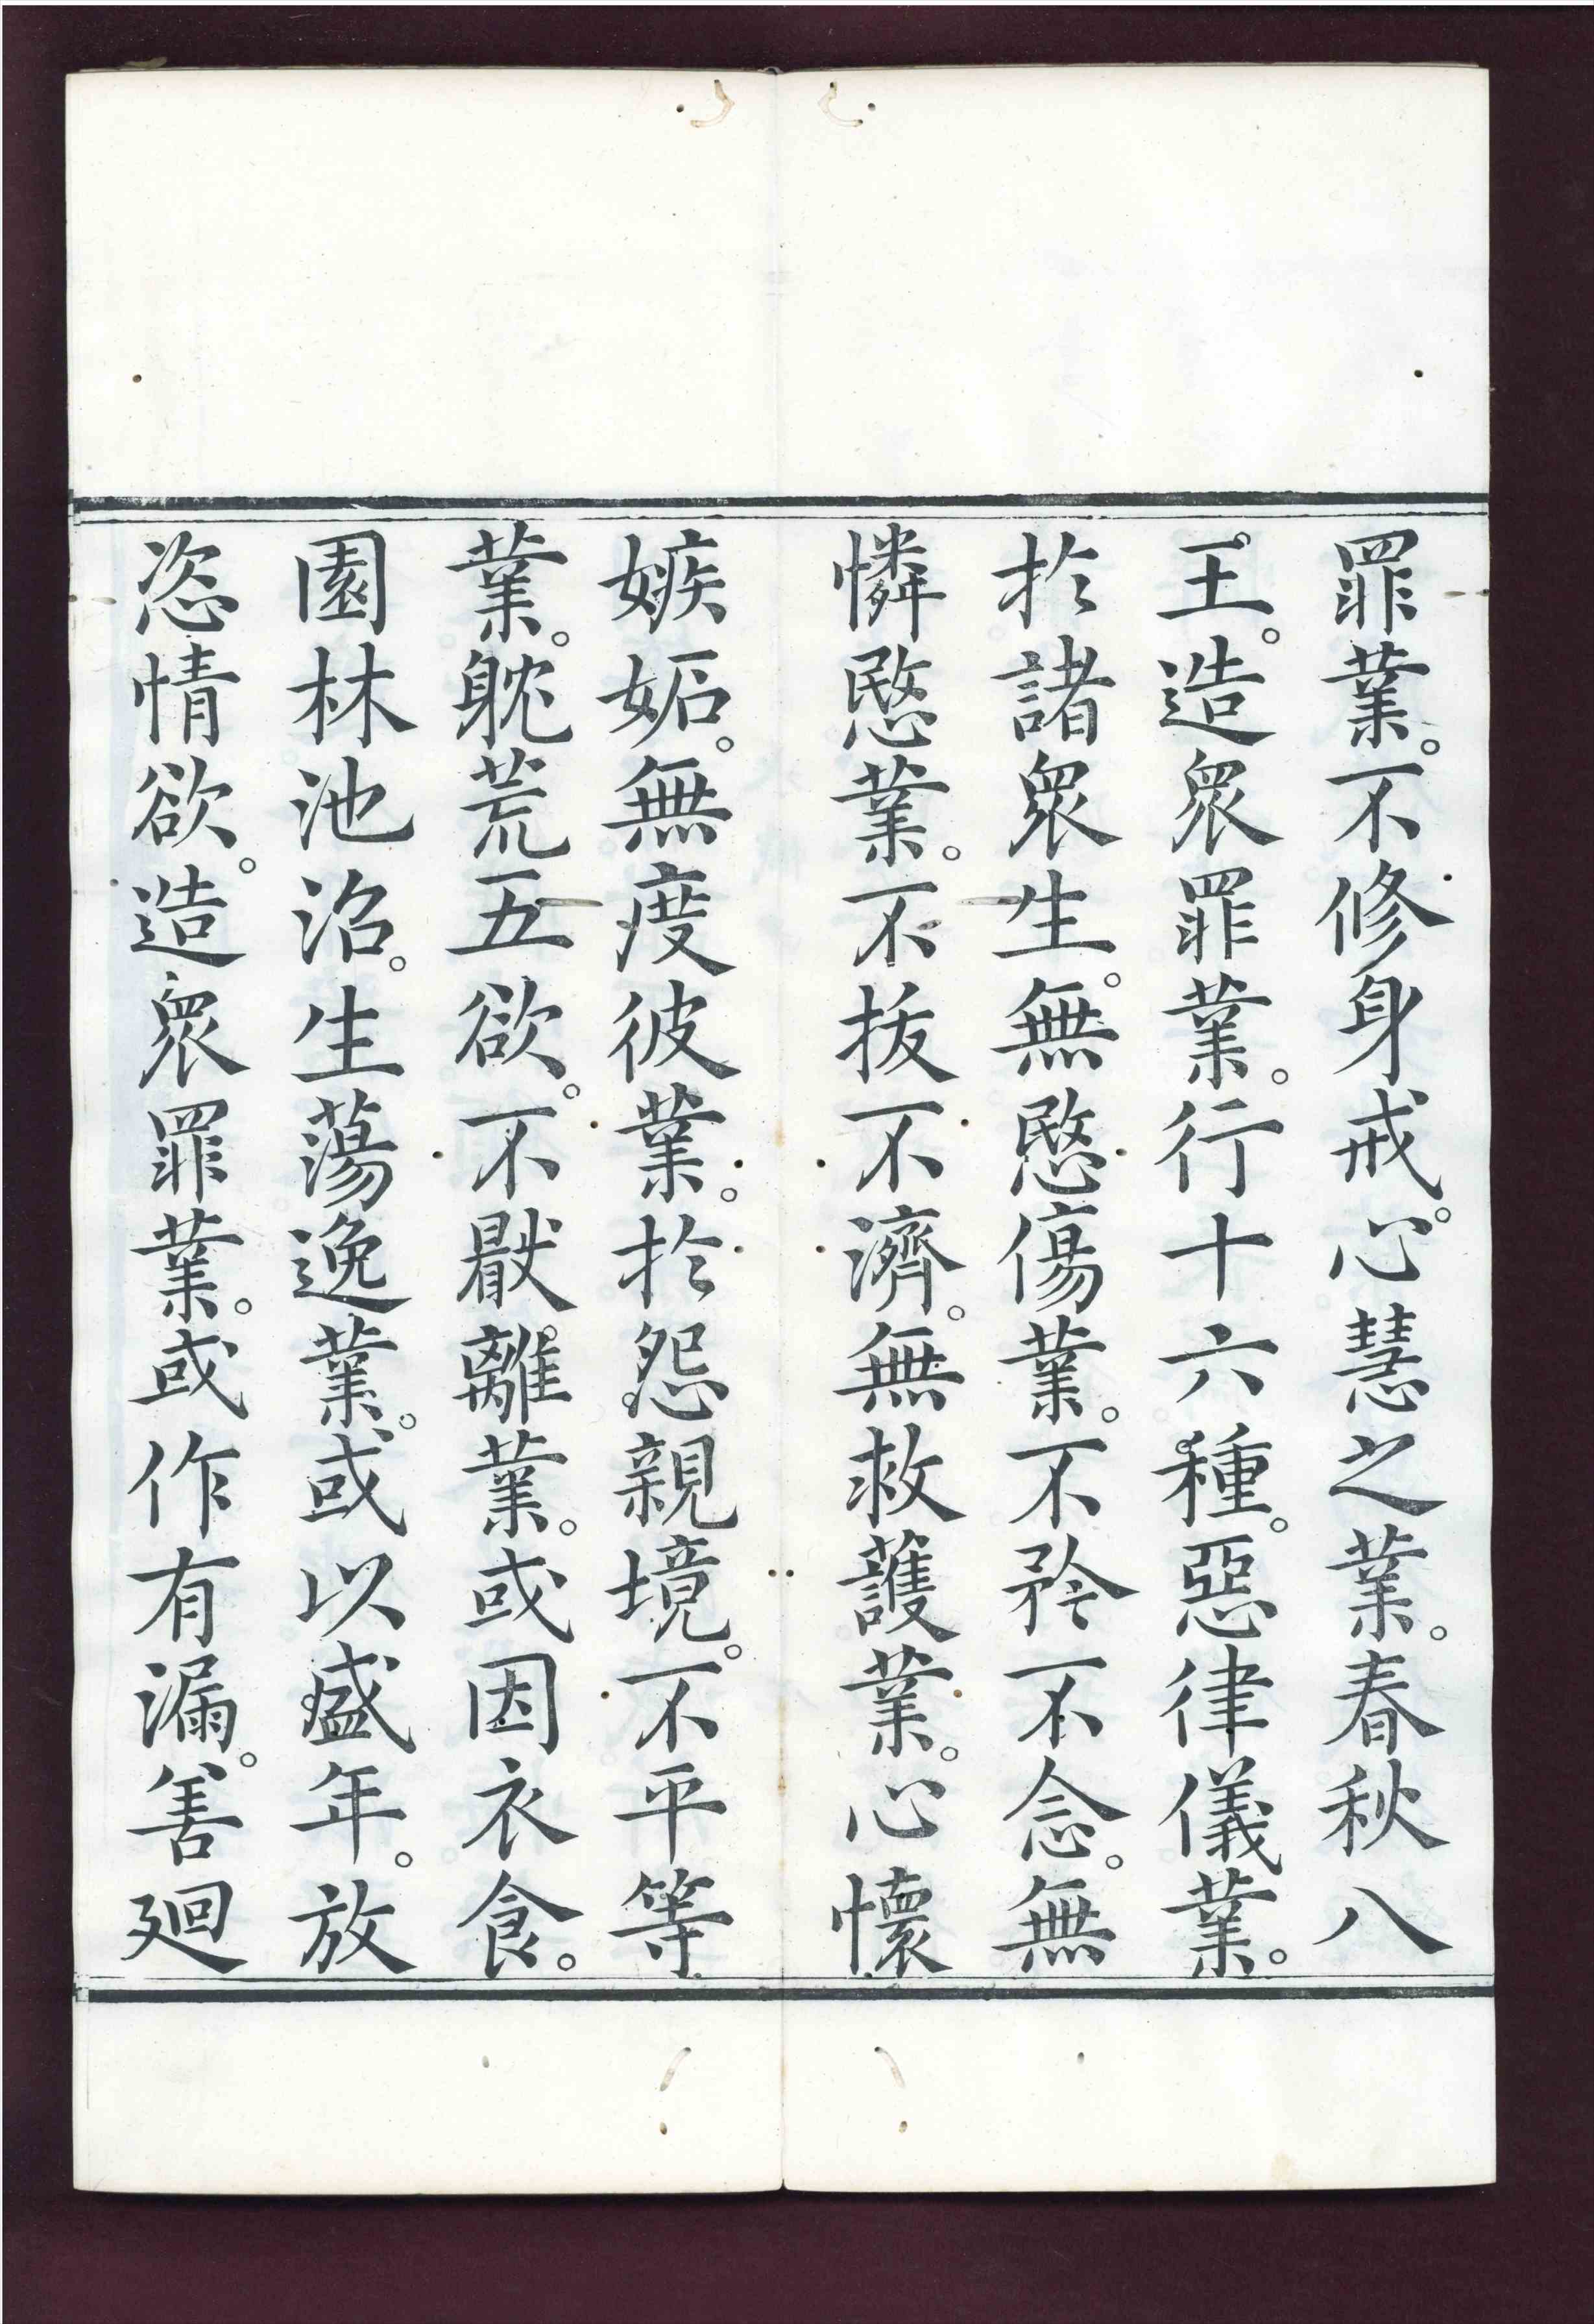 罪業。不修身戒。心慧之業。春秋八
王。造衆罪業。行十六種。惡律儀業。
於諸衆生。無愍傷業。不矜不念。無
憐愍業。不拔不濟。無救護業。心懷
嫉妬。無度彼業。於怨親境。不平等
業。躭荒五欲。不厭離業。或因衣食。
園林池沼。生蕩逸業。或以盛年。放
恣情欲。造衆罪業。或作有漏。善廻